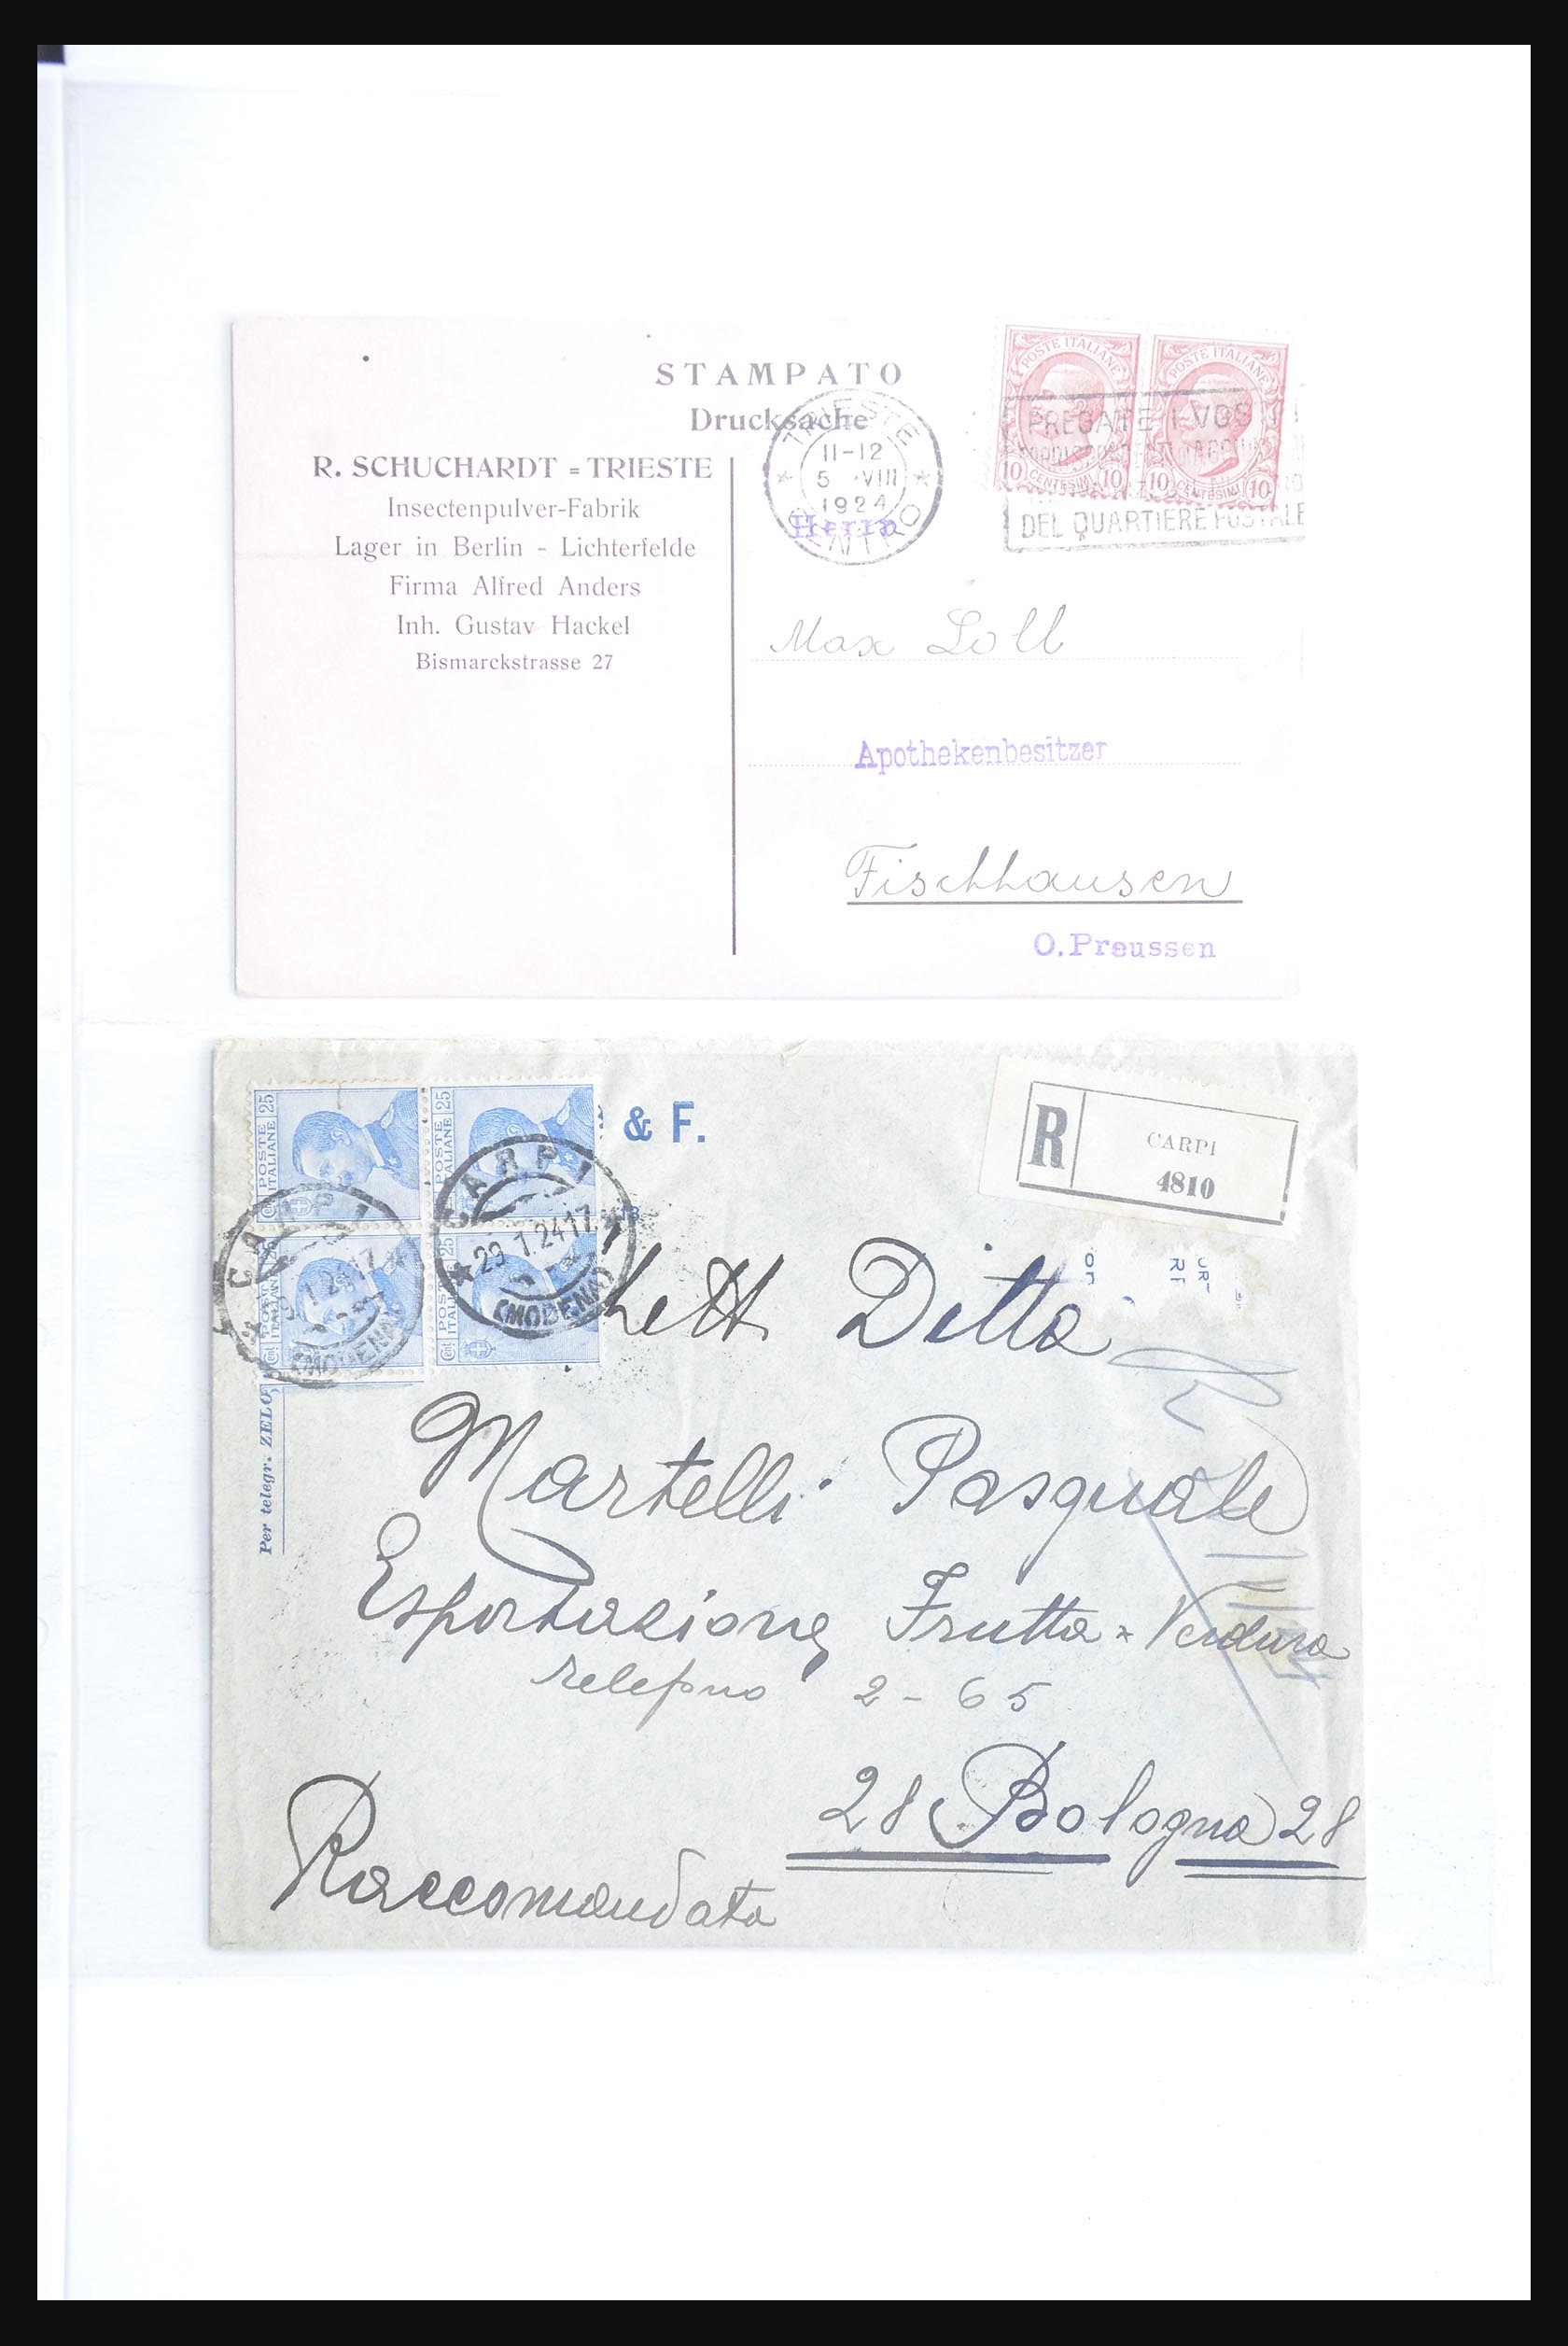 STAMPATO
Drucksache
R. SCHUCHARDT = TRIESTE
Insectenpulver-Fabrik
Lager in Berlin - Lichterfelde
Firma Alfred Anders
Inh. Gustav Hackel
Bismarckstrasse 27
TRIESTE
11-12
5 VIII
1924
CENTRO
POSTE ITALIANE
10 CENTESIMI 10
POSTE ITALIANE
10 CENTESIMI 10
PREGATE I VOS
DEL QUARTIERE POSTALE
Herrn
Max Loll
Apothekenbesitzer
Fischhausen
O.Preussen
& F.
R
CARPI
4810
POSTE ITALIANE 25
POSTE ITALIANE 25
POSTE ITALIANE 25
POSTE ITALIANE
CARPI
29.1.24 17
(MODENA)
CARPI
(MODENA)
Per telegr. ZELO,
Ditta
Martelli Pasquale
Esportazione Frutta * Verdura
Telefono 2-65
28 Bologna 28
Raccomandata